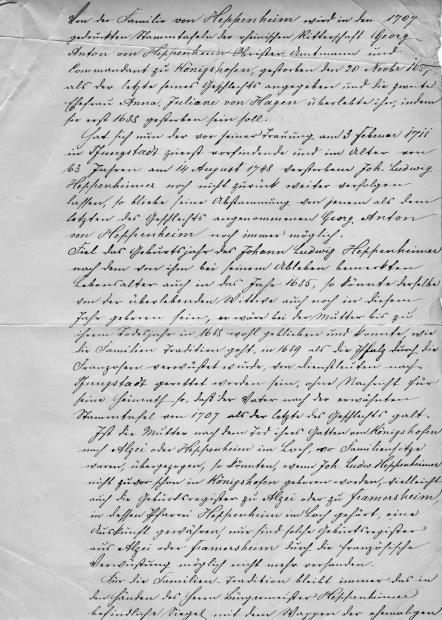 Von der Familie von Heppenheim wird in den 1707
gedruckten Stammtafeln der rheinischen Ritterschaft Georg
Anton von Heppenheim Obrister Amtmann und
Commandant zu Königshofen, gestorben den 20 Novbr
als der letzte seines Geschlechts angegeben und die zweite
Ehefrau Anna Juliane von Hagen überlebte ihn, indem
sie erst 1688 gestorben sein soll.
Hat sich nun der vor seiner Trauung am 3 Februar 1711
in Pfungstadt zuerst vorfindende und im Alter von
63 Jahren am 14 August 1748 verstorbene Joh. Ludwig
Heppenheimer noch nicht zurück weiter verfolgen
lassen, so bliebe seine Abstammung von jenem als dem
letzten des Geschlechts angenommenen Georg Anton
von Heppenheim noch immer möglich.
Fiel das Geburtsjahr des Johann Ludwig Heppenheimer
nach dem von ihm bei seinem Ableben bemerkten
Lebensalter auch in das Jahr 1685, so könnte derselbe
von der überlebenden Wittwe auch noch in diesem
Jahr geboren sein, er wäre bei der Mutter bis zu
ihrem Todesjahr in 1688 wohl geblieben und konnte, wie
die Familien Tradition geht, in 1689 als die Pfalz durch die
Franzosen verwüstet wurde, von Dienstleuten nach
Pfungstadt gerettet worden sein, ohne Nachricht für
seine Heimath so, daß der Vater nach der erwähnten
Stammtafel von 1707 als der letzte des Geschlechts galt.
Ist die Mutter nach dem Tod ihres Gatten von Königshofen
nach Alzei oder Heppenheim im Loch, wo Familiensitze
waren, übergezogen, so könnten, wenn Joh. Ludw. Heppenheimer
nicht zuvor schon in Königshofen geboren worden, vielleicht
auch die Geburtsregister zu Alzei oder zu Framersheim,
in dessen Pfarrei Heppenheim im Loch gehört, eine
Auskunft gewähren, nur sind solche Geburtsregister
aus Alzei oder Framersheim durch die französische
Verwüstung möglich nicht mehr vorhanden.
Für die Familien-Tradition bleibt immer das in
den Händen des Herrn Bürgermeister Heppenheimer
befindliche Siegel mit dem Wappen der ehemaligen